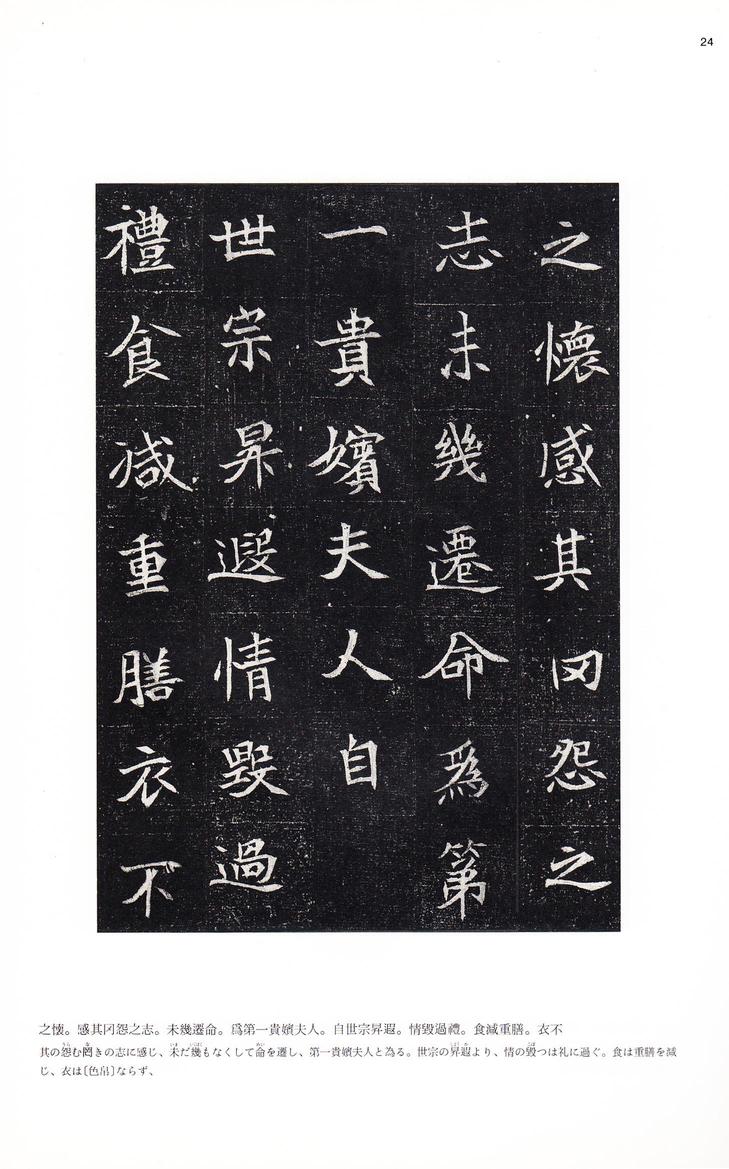 24
之懷感其罔怨之
志未幾遷命爲第
一貴嬪夫人自
世宗昇遐情毀過
禮食減重膳衣不
之懷。感其罔怨之志。未幾遷命。爲第一貴嬪夫人。自世宗昇遐。情毀過禮。食減重膳。衣不
其の怨む罔きの志に感じ、未だ幾もなくして命を遷し、第一貴嬪夫人と為る。世宗の昇遐より、情の毀つは礼に過ぐ。食は重膳を減
じ、衣は〔色帛〕ならず、